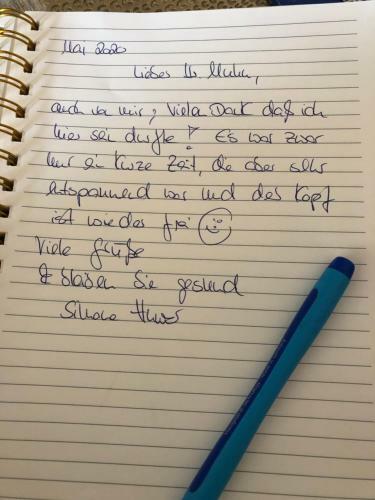 Mai 2020
Liebes
auch von mir, vielen Dank daß ich
hier sein durfte! Es war zwar
nur ein kurze Zeit, die aber sehr
entspannend war und des Kopf
ist wieder frei
Viele Grüße
& bleiben Sie gesund
Simone